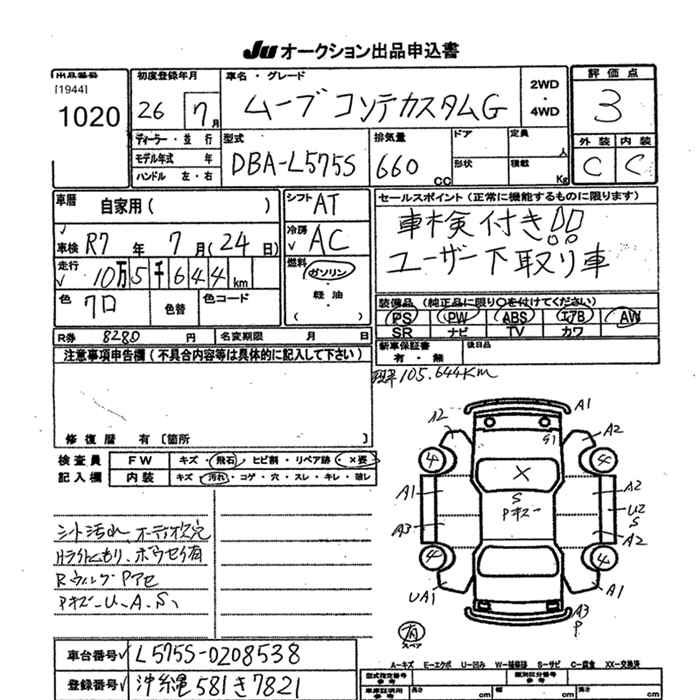 JU オークション出品申込書
出品番号 初度登録年月 車名・グレード 2WD ・ 4WD 評価点
[1944]
1020 26 7月 ムーブコンテカスタムG 3
ディーラー・並行 型式 排気量 ドア 定員 人 外装 内装
モデル年式 年 DBA-L575S 660 CC 形状 積載 Kg C C
ハンドル 左・右
車歴 自家用( ) シフト AT セールスポイント(正常に機能するものに限ります)
車検 R7年 7月(24日) 冷房 AC 車検付き!!
走行 10万5千644km 燃料 ガソリン ・ 軽油 ( ) ユーザー下取り車
色 クロ 色替 色コード 装備品(純正品に限り○を付けてください)
PS PW ABS エアB AW
SR ナビ TV カワ
R券 8280円 名変期限 月 日 新車保証書 有・無 後日品
注意事項申告欄(不具合内容等は具体的に記入して下さい)
105.644Km
修復歴 有〔箇所 〕
検査員 FW キズ・飛石・ヒビ割・リペア跡・×要
記入欄 内装 キズ・汚れ・コゲ・穴・スレ・キレ・破レ
A2 A1
G1 A2
4 4
X
A1 S A2
Pキズー U2
S
A3 A2
4 4
UA1 A1
A3
P
有
スペア
シート汚れ、オーディオ欠穴
Hライトくもり、ボウセイ有
RウィングPアセ
PキズーU.A.S、
A-キズ E-エクボ U-凹み W-補修跡 S-サビ C-腐食 XX-交換済
車台番号 L575S-0208538
登録番号 沖縄581き7821
型式指定番号 参考 類別区分番号 参考
車庫証明用 参考 長さ cm 幅 cm 高さ cm